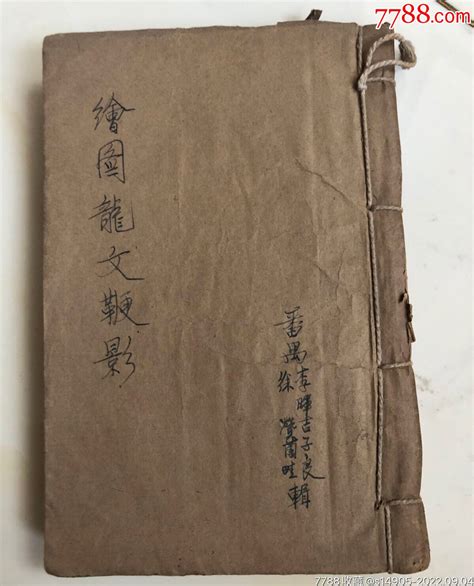 7788.com
繪圖龍文鞭影
番禺李暉吉子良
徐蘭畦輯
7788收藏
2022.09.04